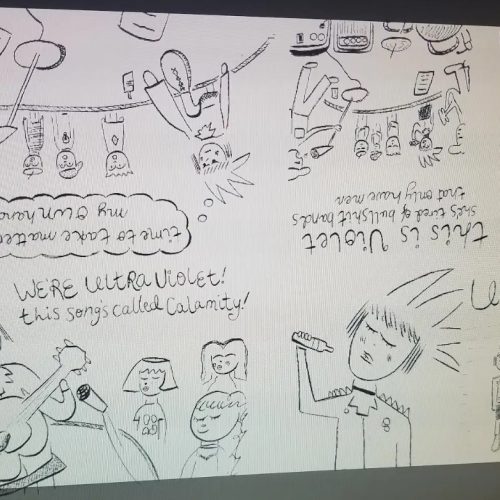 this is Violet
she's tired of bullshit bands
that only have men
time to take
my own
WE'RE UltRA Violet!
this song's called Calamity!